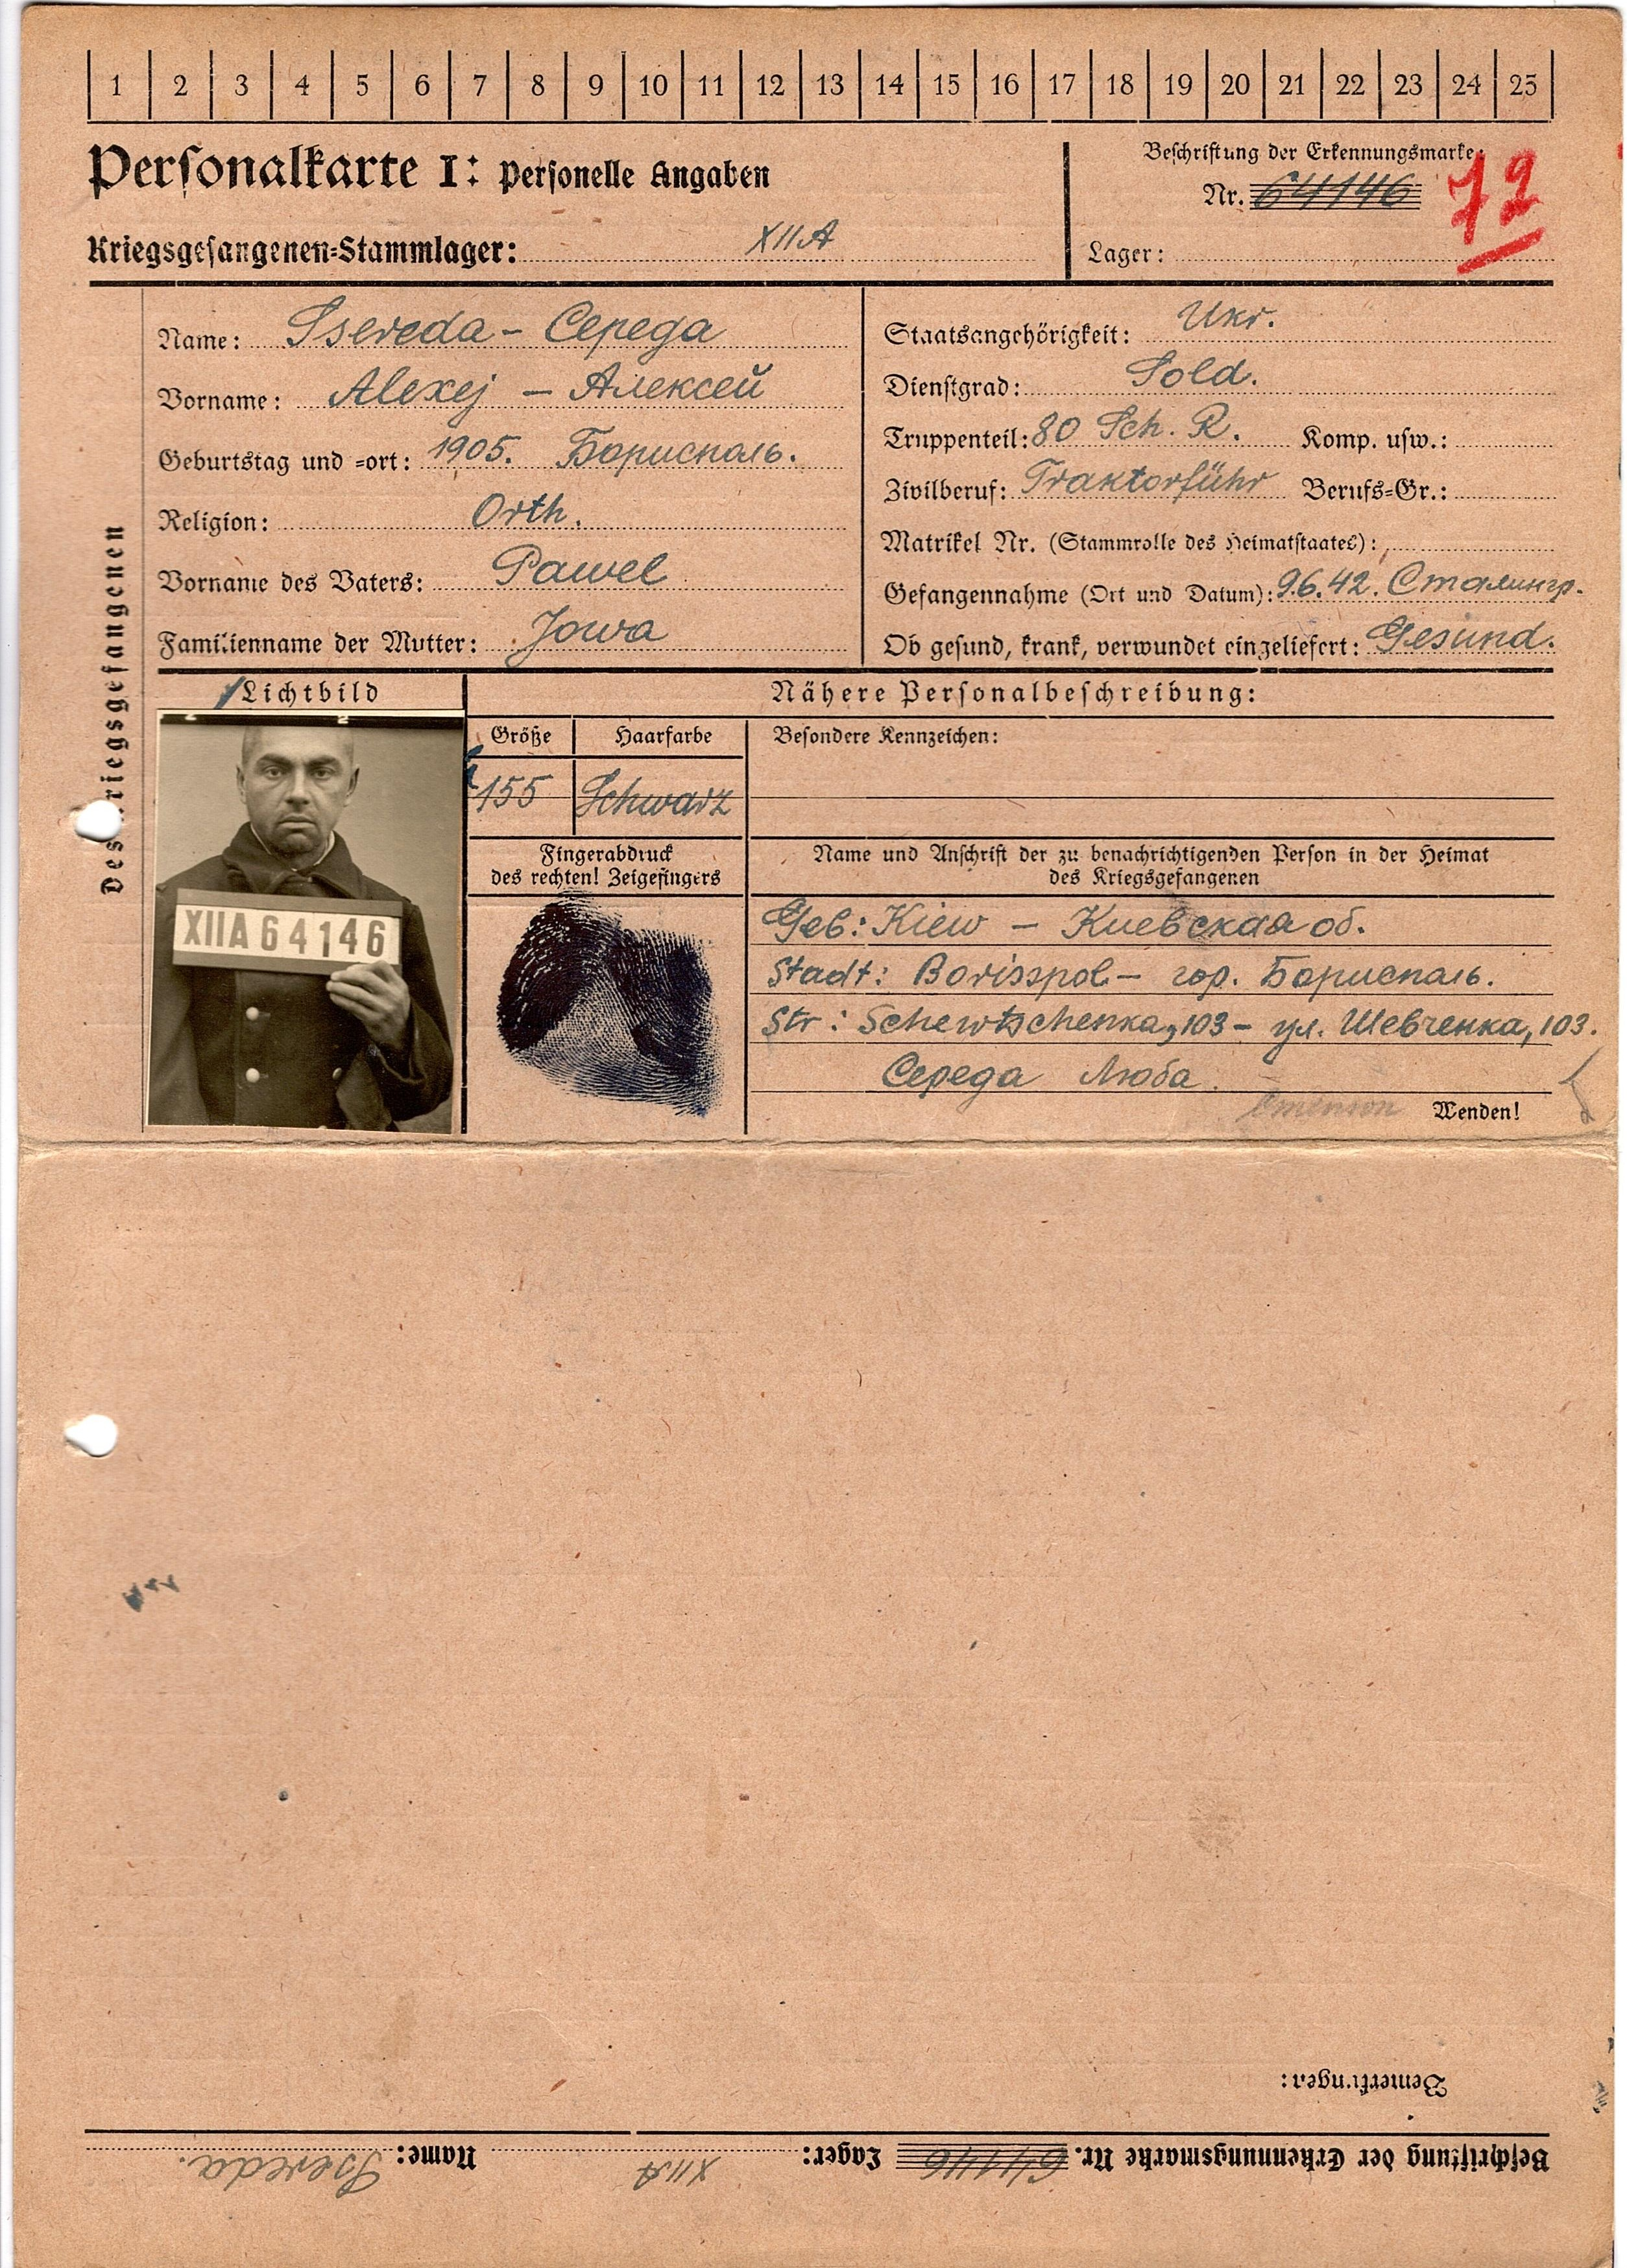 1 2 3 4 5 6 7 8 9 10 11 12 13 14 15 16 17 18 19 20 21 22 23 24 25
Personalkarte I: Personelle Angaben
Beschriftung der Erkennungsmarke:
Nr. 64146 72
Kriegsgefangenen-Stammlager: XIIA
Lager:
Des Kriegsgefangenen
Name: Ssereda - Середа
Vorname: Alexej - Алексей
Geburtstag und -ort: 1905. Бориспаль.
Religion: Orth.
Vorname des Vaters: Pawel
Familienname der Mutter: Jowa
Staatsangehörigkeit: Ukr.
Dienstgrad: Sold.
Truppenteil: 80 Sch. R. Komp. usw.:
Zivilberuf: Traktorführ Berufs-Gr.:
Matrikel Nr. (Stammrolle des Heimatstaates):
Gefangennahme (Ort und Datum): 9.6.42. Сталингр.
Ob gesund, krank, verwundet eingeliefert: Gesund.
Lichtbild
XIIA 64146
Nähere Personalbeschreibung:
Größe Haarfarbe
155 Schwarz
Besondere Kennzeichen:
Fingerabdruck
des rechten! Zeigefingers
Name und Anschrift der zu benachrichtigenden Person in der Heimat
des Kriegsgefangenen
Geb: Kiew - Киевская об.
Stadt: Borisspol - гор. Бориспаль.
Str: Schewtschenka, 103 - ул. Шевченка, 103.
Середа Люба
Wenden!
Bemerkungen:
Beschriftung der Erkennungsmarke Nr. 64146 Lager: XIIA Name: Ssereda.